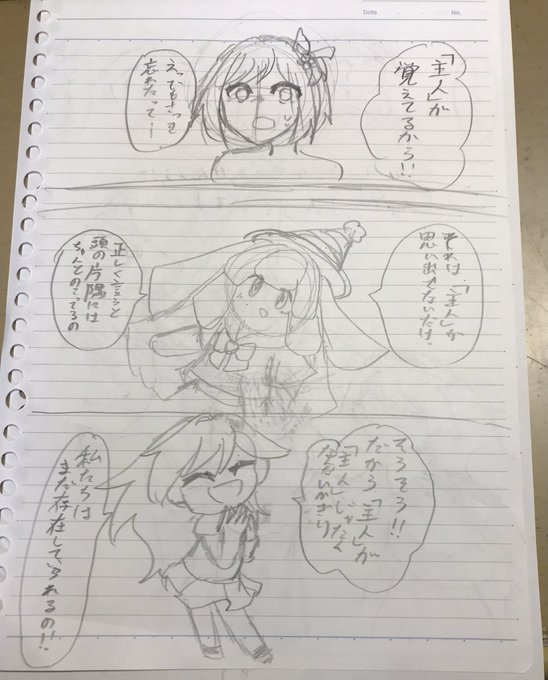 Date
No.
「主人」が
覚えてるから!!
えっでもさっき
忘れたってー
それは、「主人」が
思い出せないだけ、
正しく言うと
頭の片隅には
ちゃんとのこってるの
そうそう!!
だから「主人」が
「主人」じゃなく
ならないかぎり
私たちは
まだ存在していられるの!!